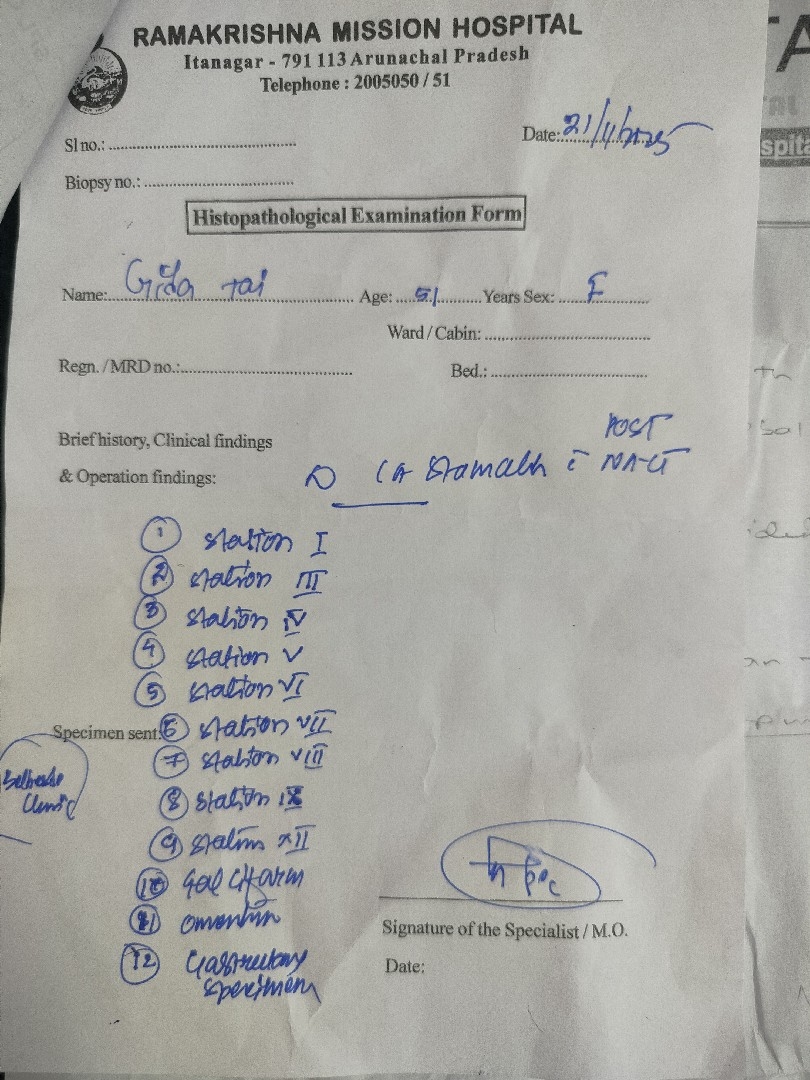 RAMAKRISHNA MISSION HOSPITAL
Itanagar - 791 113 Arunachal Pradesh
Telephone : 2005050 / 51
Sl no.:
Date: 21/4/2025
Biopsy no.:
Histopathological Examination Form
Name: Gida Tai Age: 51 Years Sex: F
Ward / Cabin:
Regn. / MRD no.:
Bed.:
Brief history, Clinical findings
POST
& Operation findings: CA Stomach c̄ NACT
1 Station I
2 Station III
3 Station IV
4 Station V
5 Station VI
Specimen sent: 6 Station VII
7 Station VIII
8 Station IX
9 Station XII
10
11 omentum
12 Gastrectomy
specimen
Clinic
Signature of the Specialist / M.O.
Date: